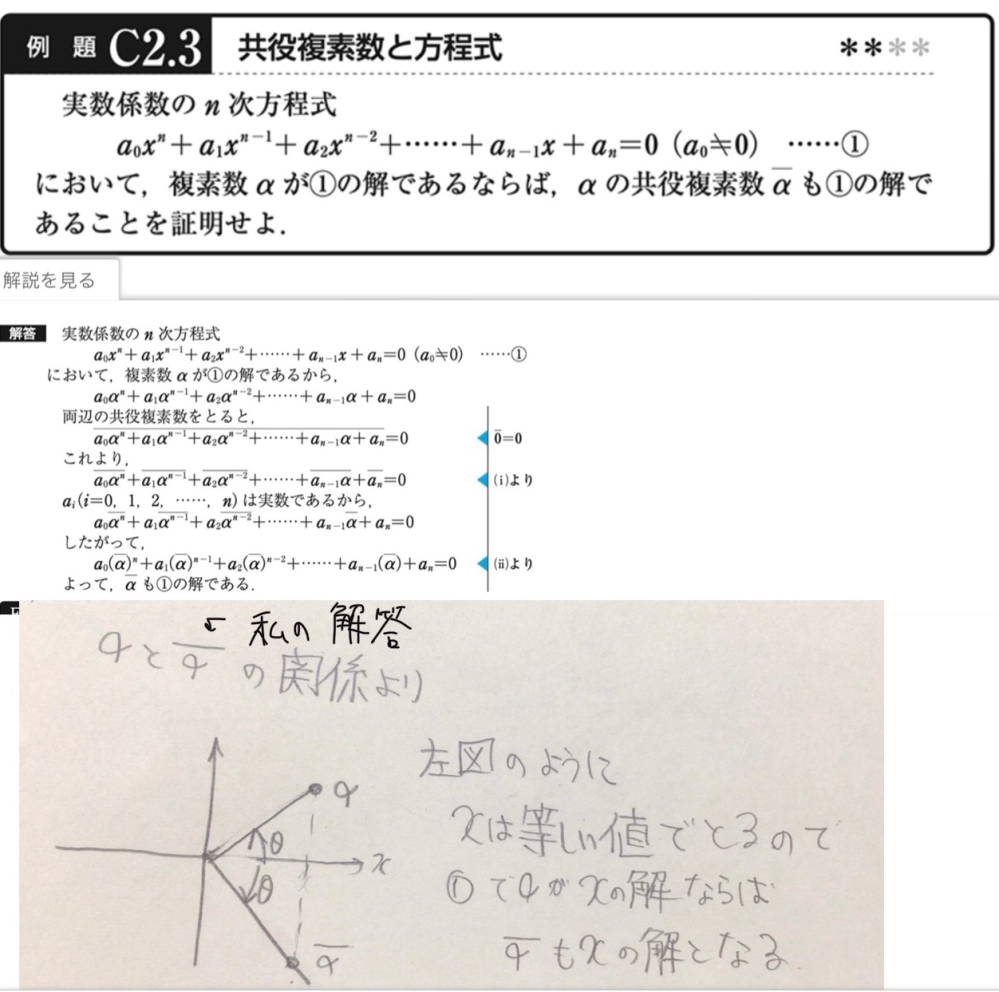 例題 C2.3 共役複素数と方程式 ****
実数係数の n 次方程式
a₀xⁿ+a₁xⁿ⁻¹+a₂xⁿ⁻²+……+aₙ₋₁x+aₙ=0 (a₀≒0) ……①
において,複素数 α が①の解であるならば,α の共役複素数 α̅ も①の解で
あることを証明せよ.
解説を見る
解答 実数係数の n 次方程式
a₀xⁿ+a₁xⁿ⁻¹+a₂xⁿ⁻²+……+aₙ₋₁x+aₙ=0 (a₀≒0) ……①
において,複素数 α が①の解であるから,
a₀αⁿ+a₁αⁿ⁻¹+a₂αⁿ⁻²+……+aₙ₋₁α+aₙ=0
両辺の共役複素数をとると,
\overline{a₀αⁿ+a₁αⁿ⁻¹+a₂αⁿ⁻²+……+aₙ₋₁α+aₙ}=0 ◀ 0̅=0
これより,
\overline{a₀αⁿ}+\overline{a₁αⁿ⁻¹}+\overline{a₂αⁿ⁻²}+……+\overline{aₙ₋₁α}+\overline{aₙ}=0 ◀ (i)より
aᵢ(i=0, 1, 2, ……, n) は実数であるから,
a₀\overline{αⁿ}+a₁\overline{αⁿ⁻¹}+a₂\overline{αⁿ⁻²}+……+aₙ₋₁α̅+aₙ=0
したがって,
a₀(α̅)ⁿ+a₁(α̅)ⁿ⁻¹+a₂(α̅)ⁿ⁻²+……+aₙ₋₁(α̅)+aₙ=0 ◀ (ii)より
よって,α̅ も①の解である.
私の解答
αとα̅の関係より
α
θ
x
θ
α̅
左図のように
xは等しい値でとるので
①でαがxの解ならば
α̅もxの解となる.